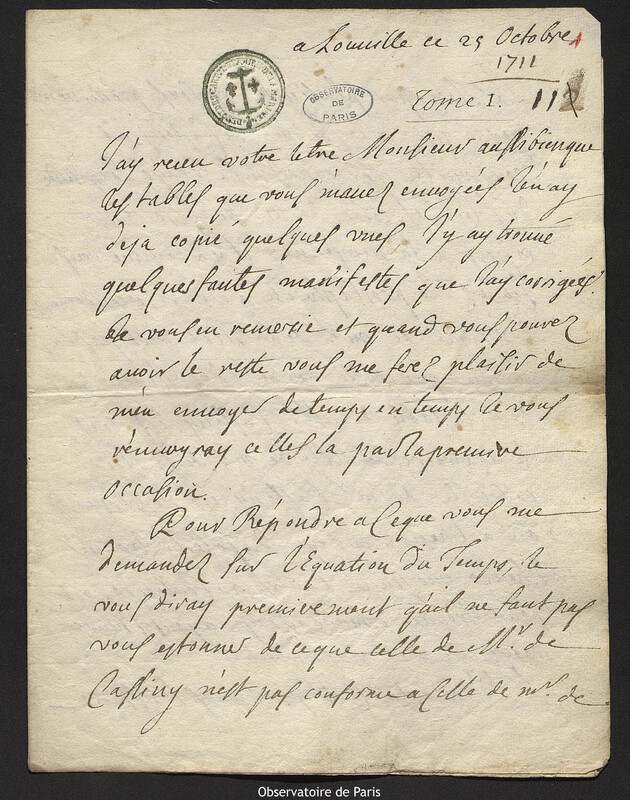 a Louville ce 25 Octobre
1711
OBSERVATOIRE DE PARIS
Tome I. 11
J'ay receu votre lettre Monsieur aussibienque
les tables que vous m'avez envoyées J'en ay
deja copié quelques unes J'y ay trouvé
quelques fautes manifestes que J'ay corrigées
Je vous en remercie et quand vous pouvez
avoir le reste vous me ferez plaisir de
m'en envoyer de temps en temps Je vous
renvoyray celles la par la premiere
occasion.
Pour Répondre a ce que vous me
demandez sur l'Equation du Temps, Je
vous diray premierement qu'il ne faut pas
vous estonner de ce que celle de Mr. de
Cassiny n'est pas conforme a celle de mr. de
Observatoire de Paris